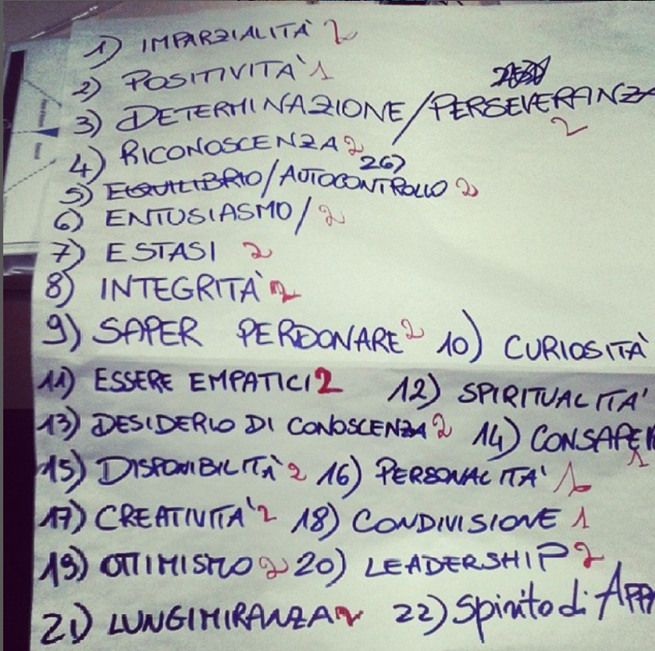 1) IMPARZIALITÀ 2
2) POSITIVITÀ 1
3) DETERMINAZIONE/PERSEVERANZA 2
4) RICONOSCENZA 2
5) EQUILIBRIO/AUTOCONTROLLO 2 26)
6) ENTUSIASMO/ 2
7) ESTASI 2
8) INTEGRITÀ 2
9) SAPER PERDONARE 2 10) CURIOSITÀ
11) ESSERE EMPATICI 2 12) SPIRITUALITA'
13) DESIDERIO DI CONOSCENZA 2 14) CONSAPE 1
15) DISPONIBILITÀ 2 16) PERSONALITA' 1
17) CREATIVITA' 2 18) CONDIVISIONE 1
19) OTTIMISMO 2 20) LEADERSHIP 2
21) LUNGIMIRANZA 2 22) Spirito di APP